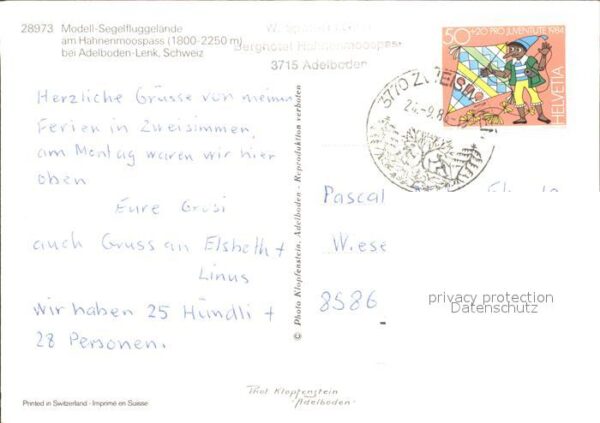 28973 Modell-Segelfluggelände
am Hahnenmoospass (1800-2250 m)
bei Adelboden-Lenk, Schweiz
Berghotel Hahnenmoospass
3715 Adelboden
50+20 PRO JUVENTUTE 1984
HELVETIA
3770 ZWEISIM
Herzliche Grüsse von meinen
Ferien in Zweisimmen,
am Montag waren wir hier
oben
Eure Grosi
auch Gruss an Elsbeth +
Linus
Wir haben 25 Hündli +
28 Personen.
© Photo Klopfenstein, Adelboden - Reproduktion verboten
Pascal
Wiese
8586
privacy protection
Datenschutz
Phot Klopfenstein
"Adelboden"
Printed in Switzerland - Imprimé en Suisse